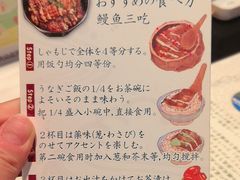 おすすめの食べ方
鳗鱼三吃
Step①
しゃもじで全体を4等分する。
用饭勺均分四等份。
Step②
うなぎご飯の1/4をお茶碗に
よそいそのまま味わう。
把1/4盛入小碗中,直接食用。
2杯目は薬味(葱・わさび)を
のせてアクセントを楽しむ。
第二碗食用时加入葱和芥末等,均匀搅拌。
3杯目はお出汁をかけてお茶漬け